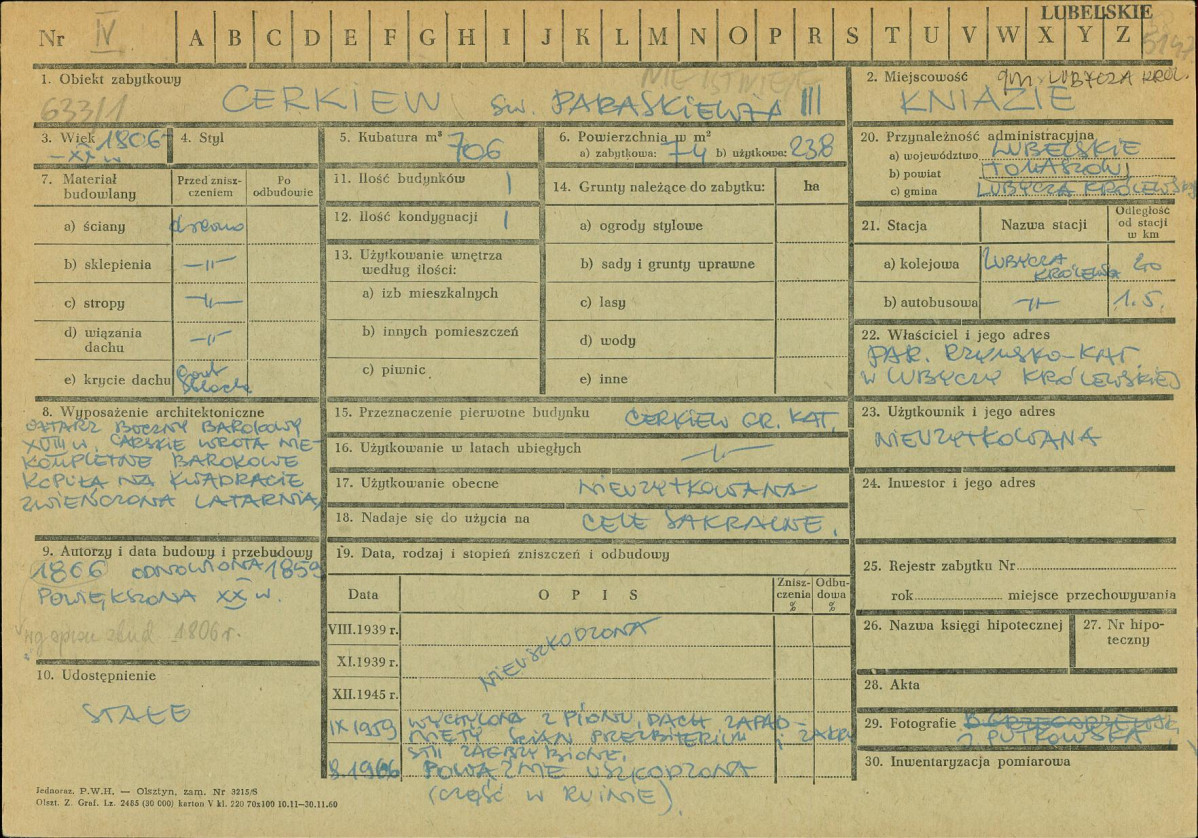 LUBELSKIE
Nr IV A B C D E F G H I J K L M N O P R S T U V W X Y Z
1. Obiekt zabytkowy
633/1
NIE ISTNIEJE
CERKIEW św. PARASKIEWIA III
2. Miejscowość gm. LUBYCZA KRÓL.
KNIAZIE
3. Wiek 1806
-XX w
4. Styl
5. Kubatura m³
706
6. Powierzchnia w m²
a) zabytkowa: 74 b) użytkowa: 238
20. Przynależność administracyjna
a) województwo LUBELSKIE
b) powiat TOMASZÓW
c) gmina LUBYCZA KRÓLEWSKA
7. Materiał budowlany
Przed zniszczeniem
Po odbudowie
a) ściany drewno
b) sklepienia -"-
c) stropy -"-
d) wiązania dachu -"-
e) krycie dachu gont
blacha
11. Ilość budynków 1
12. Ilość kondygnacji 1
13. Użytkowanie wnętrza
według ilości:
a) izb mieszkalnych
b) innych pomieszczeń
c) piwnic
14. Grunty należące do zabytku: ha
a) ogrody stylowe
b) sady i grunty uprawne
c) lasy
d) wody
e) inne
21. Stacja Nazwa stacji Odległość od stacji w km
a) kolejowa LUBYCZA
KRÓLEWSKA 20
b) autobusowa -"- 1.5.
22. Właściciel i jego adres
PAR. RZYMSKO-KAT.
W LUBYCZY KRÓLEWSKIEJ
8. Wyposażenie architektoniczne
OŁTARZ BOCZNY BAROKOWY
XVIII w. CARSKIE WROTA NIE-
KOMPLETNE BAROKOWE
KOPUŁA NA KWADRACIE
ZWIEŃCZONA LATARNIĄ
15. Przeznaczenie pierwotne budynku CERKIEW GR. KAT.
16. Użytkowanie w latach ubiegłych -"-
17. Użytkowanie obecne NIEUŻYTKOWANA
18. Nadaje się do użycia na CELE SAKRALNE.
23. Użytkownik i jego adres
NIEUŻYTKOWANA
24. Inwestor i jego adres
9. Autorzy i data budowy i przebudowy
1806 ODNOWIONA 1859
POWIĘKSZONA XX w.
wg oprac zbud 1806 r.
10. Udostępnienie
STAŁE
19. Data, rodzaj i stopień zniszczeń i odbudowy
Data OPIS Zniszczenia % Odbudowa %
VIII.1939 r.
XI.1939 r. NIEUSZKODZONA
XII.1945 r.
IX 1959 WYCHYLONA Z PIONU, DACH ZAPAD-
NIĘTY ŚCIAN PREZBITERIUM i ZAKRY
STII ZAGRZYBIONE.
8.1966 POWAŻNIE USZKODZONA
(CZĘŚĆ W RUINIE).
25. Rejestr zabytku Nr
rok miejsce przechowywania
26. Nazwa księgi hipotecznej
27. Nr hipoteczny
28. Akta
29. Fotografie
J. PUTKOWSKA
30. Inwentaryzacja pomiarowa
Jednoraz. P.W.H. — Olsztyn, zam. Nr 3215/S
Olszt. Z. Graf. Lz. 2485 (30 000) karton V kl. 220 70x100 10.11—30.11.60